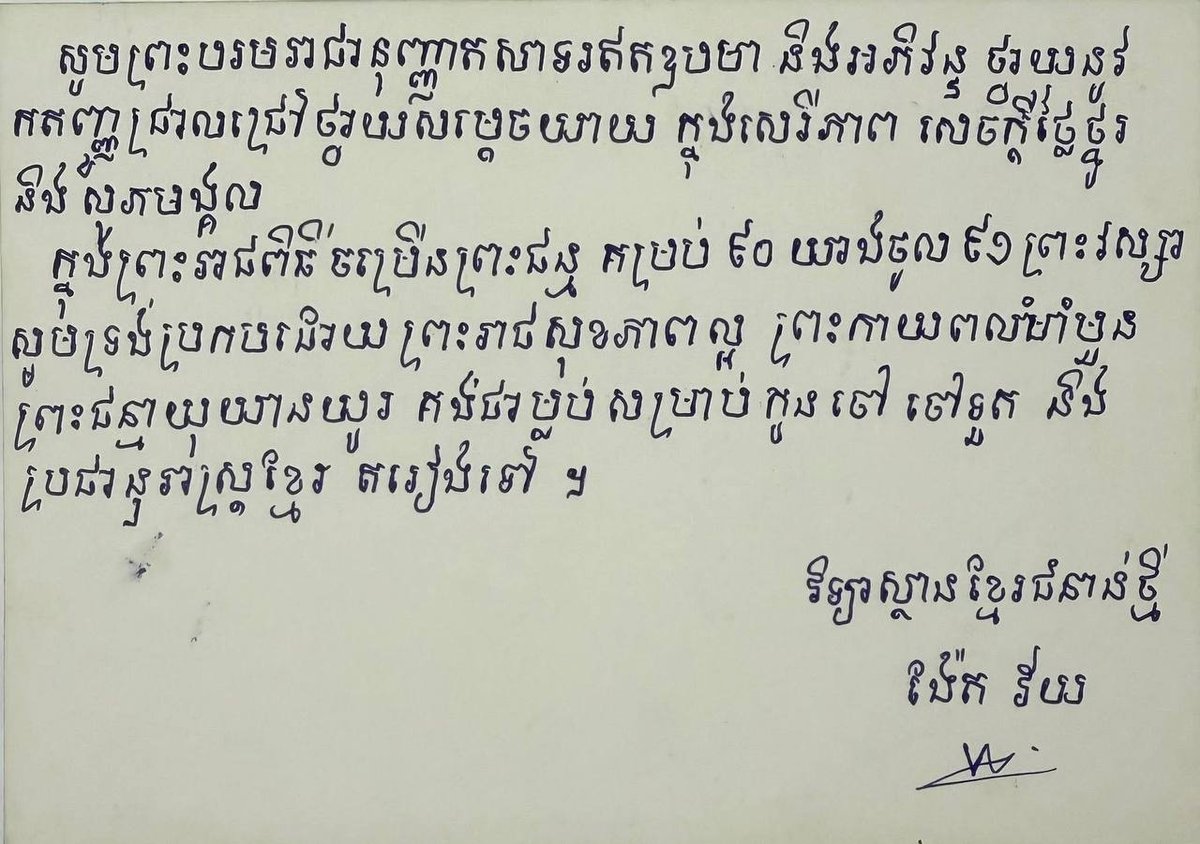 សូមព្រះបរមរាជានុញ្ញាតសាទរឥតឧបមា និងអភិវន្ទ ថ្វាយនូវ
កតញ្ញូជ្រាលជ្រៅថ្វាយសម្តេចយាយ ក្នុងសេរីភាព សេចក្តីថ្លៃថ្នូរ
និង សុភមង្គល
ក្នុងព្រះរាជពិធីចម្រើនព្រះជន្ម គម្រប់ ៩០ យាងចូល ៩១ ព្រះវស្សា
សូមទ្រង់ប្រកបដោយ ព្រះរាជសុខភាពល្អ ព្រះកាយពលមាំមួន
ព្រះជន្មាយុយឺនយូរ គង់ជាម្លប់ សម្រាប់ កូន ចៅ ចៅទួត និង
ប្រជានុរាស្ត្រខ្មែរ តរៀងទៅ ។
វិទ្យាស្ថានខ្មែរជំនាន់ថ្មី
ង៉ែត វ័យ